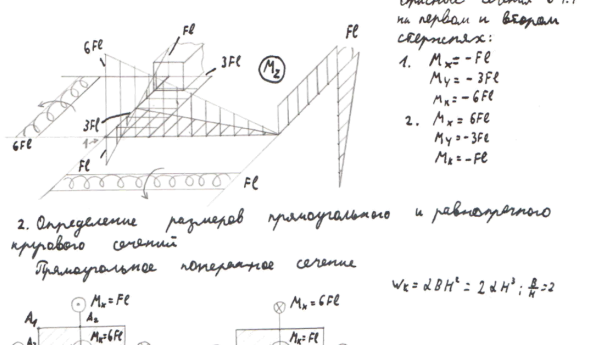 на первом и втором
стержнях:
1. Mx = -Fl
My = -3Fl
Mк = -6Fl
2. Mx = 6Fl
My = -3Fl
Mк = -Fl
Fl
6Fl
3Fl
Mz
Fl
3Fl
6Fl
Fl
Fl
2. Определение размеров прямоугольного и
кругового сечений
Прямоугольное поперечное сечение
Wк = αBH² = 2αH³; B/H = 2
Mx = Fl
Mx = 6Fl
A1
A2
Mк = 6Fl
Mк = Fl